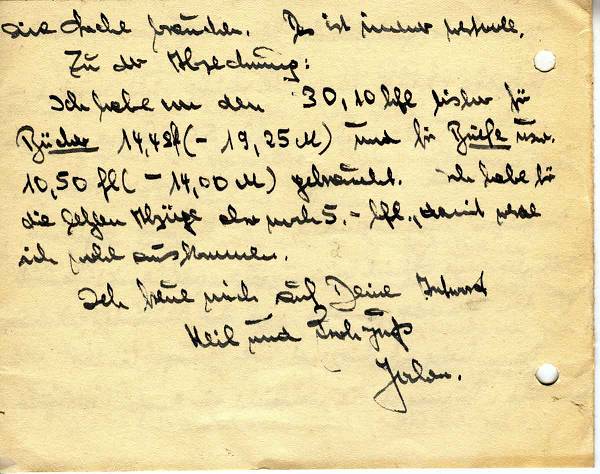 die Sache brauchen. Es ist immer wertvoll.
Zu der Abrechnung:
Ich habe von den 30,10 hfl bisher für
Bücher 14,42 fl (- 19,25 M) und für Briefe usw.
10,50 fl (- 14,00 M) gebraucht. Ich habe für
die Abzüge aber noch 5.- hfl., damit werde
ich wohl auskommen.
Ich freue mich auf Deine Antwort
Heil und